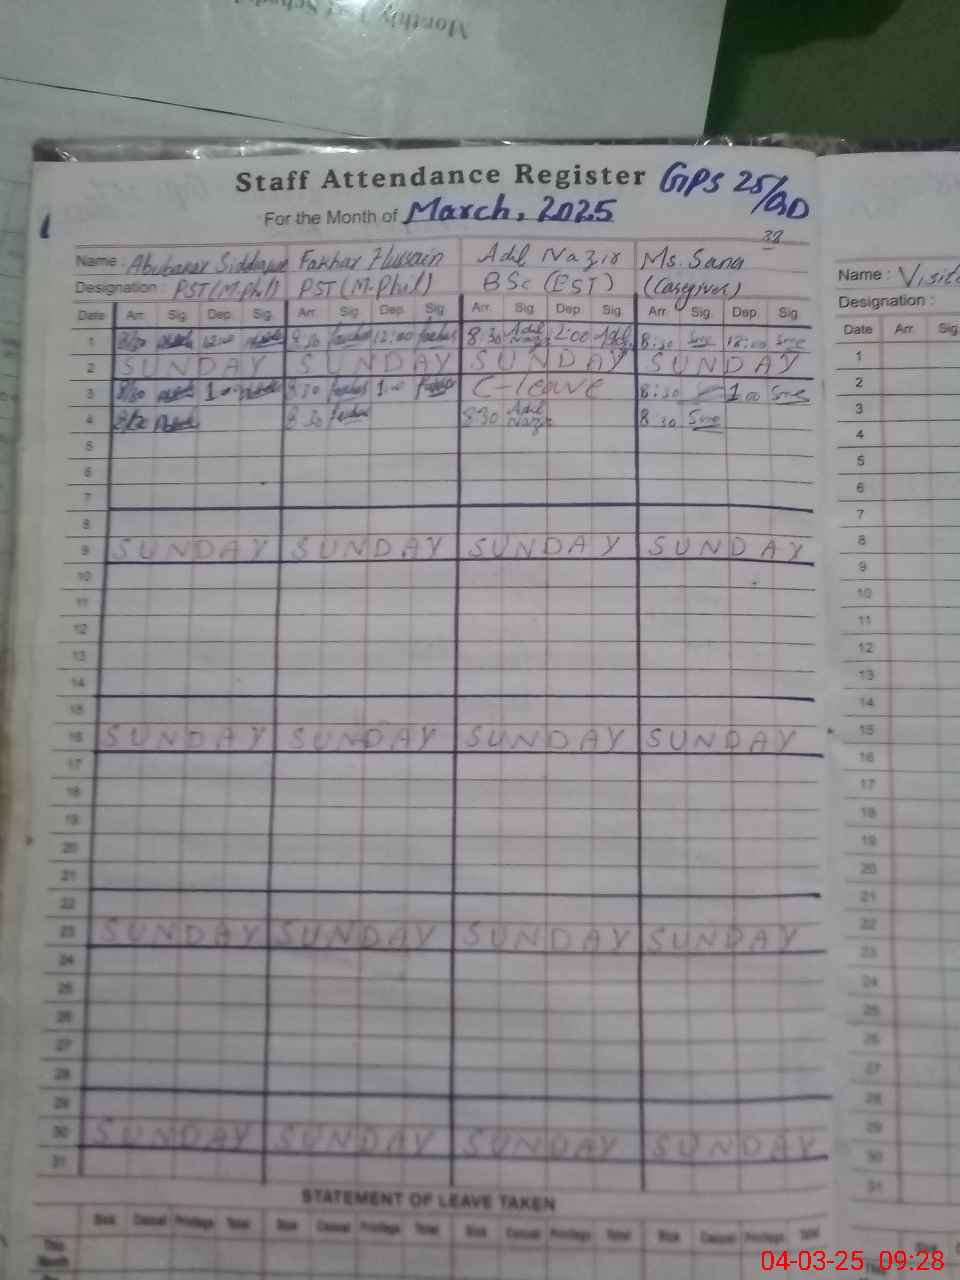 Monthly
Staff Attendance Register GPS 25/GD
For the Month of March, 2025
33
Name : Abubakar Fakhar Hussain Adil Nazir Ms. Sana
Designation : PST (M.Phil) PST (M.Phil) BSc (EST) (Caregiver)
Date Arr. Sig. Dep. Sig. Arr. Sig. Dep. Sig. Arr. Sig. Dep. Sig. Arr. Sig. Dep. Sig.
1 8/30 12:00 8:30 12:00 8:30 Adil Nazir 12:00 8:30 12:00
2 SUNDAY SUNDAY SUNDAY SUNDAY
3 8/30 1:00 8:30 1:00 C-leave 8:30 1:00
4 8/30 8:30 8:30 Adil Nazir 8:30
5
6
7
8
9 SUNDAY SUNDAY SUNDAY SUNDAY
10
11
12
13
14
15
16 SUNDAY SUNDAY SUNDAY SUNDAY
17
18
19
20
21
22
23 SUNDAY SUNDAY SUNDAY SUNDAY
24
25
26
27
28
29
30 SUNDAY SUNDAY SUNDAY SUNDAY
31
STATEMENT OF LEAVE TAKEN
Sick Casual Privilege Total Sick Casual Privilege Total Sick Casual Privilege Total Sick Casual Privilege Total
This
Month
Name :
Designation :
Date Arr. Sig
1
2
3
4
5
6
7
8
9
10
11
12
13
14
15
16
17
18
19
20
21
22
23
24
25
26
27
28
29
30
31
04-03-25 09:28